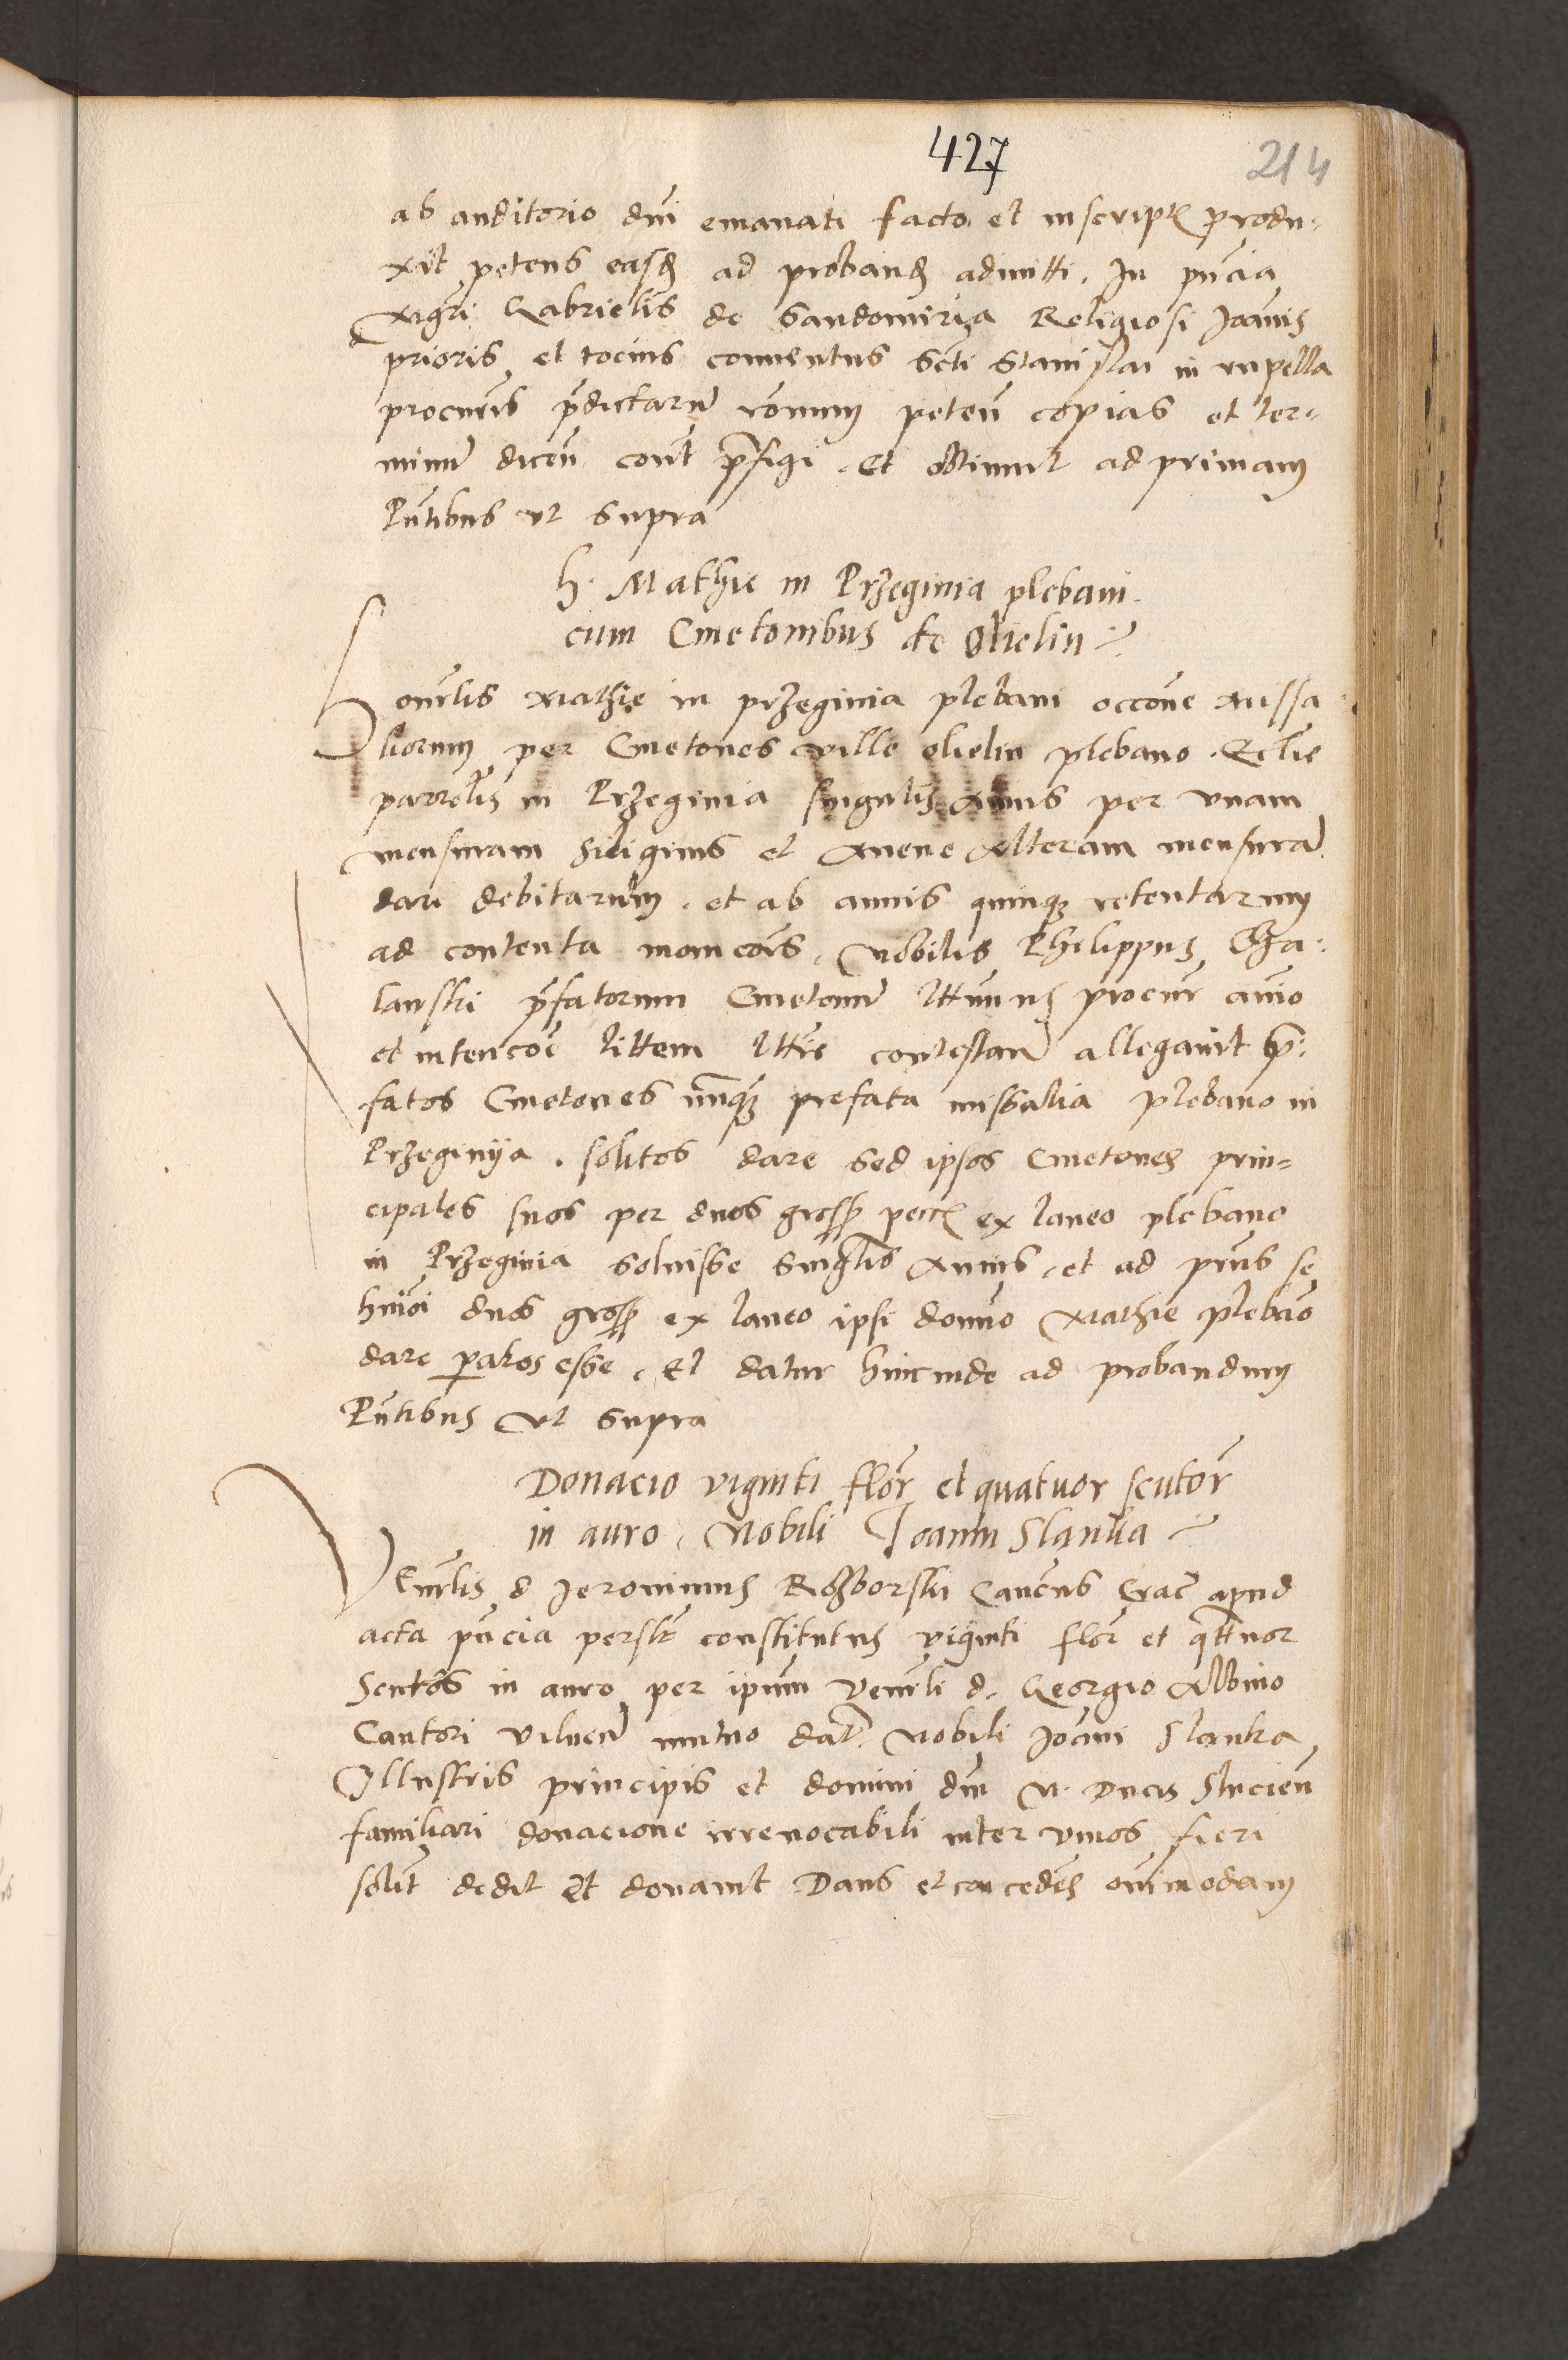 427
214
ab auditorio dni emanati facto et inscript produ-
xit petens easd ad proband admitti. In pncia
Mgri Gabrielis de Sandomiria Religiosi Joannis
prioris et tocius conventus Scti Stanislai in rupella
procuris pdictarum petenn copias et ter-
minum dicen cont pfigi. Et obtinuit ad primam
Pntibus ut supra
h. Mathie in Przeginia plebani
cum Cmetonibus de Olielin
Honrlis Mathie in przeginia plebani occone missa-
liorum per Cmetones ville olielin plebano Eclie
parrolis in Przeginia singulis Annis per unam
mensuram siliginis et Avene Alteram mensuram
dari debitarum. et ab annis quinq retentarum
ad contenta Nobilis Philippus Cha-
lanski pfatorum Cmetonum procur animo
et intencoe littem contestan allegavit p-
fatos Cmetones nunq prefata missalia plebano in
Przeginija. solitos dare sed ipsos Cmetones prin-
cipales suos per duos gross ex laneo plebano
in Przeginia solvisse singlis Annis. et ad pns se
huiusmoi duos gross ex laneo ipsi domino Mathie plebano
dare patos esse. Et datur hincinde ad probandum
Pntibus ut supra
Donacio viginti flor et quatuor scutor
in auro. Nobili Joanni Slanka
Venrlis d Jeronimus Rozborski Canonicus Crac apud
acta pncia personlr constitutus viginti flor et qttuor
Scutos in auro per ipsum Venrli d. Georgio Albino
Cantori Vilnen mutuo dat. Nobili Joanni Slanka
Illustris principis et domini dni N. Ducis Slucien
familiari donacione irrevocabili inter vivos fieri
solit dedit Et donavit Dans et concedens omnimodam